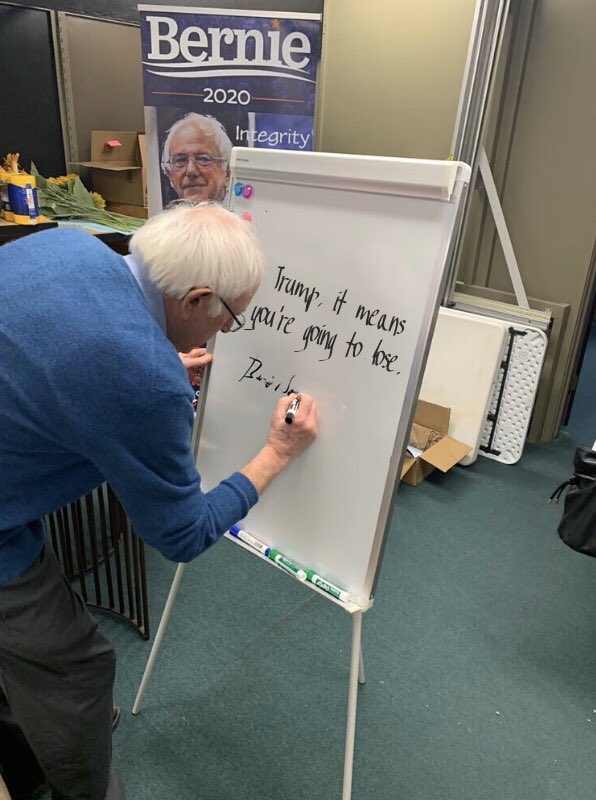 Bernie
2020
Integrity
Trump, it means
you're going to lose.